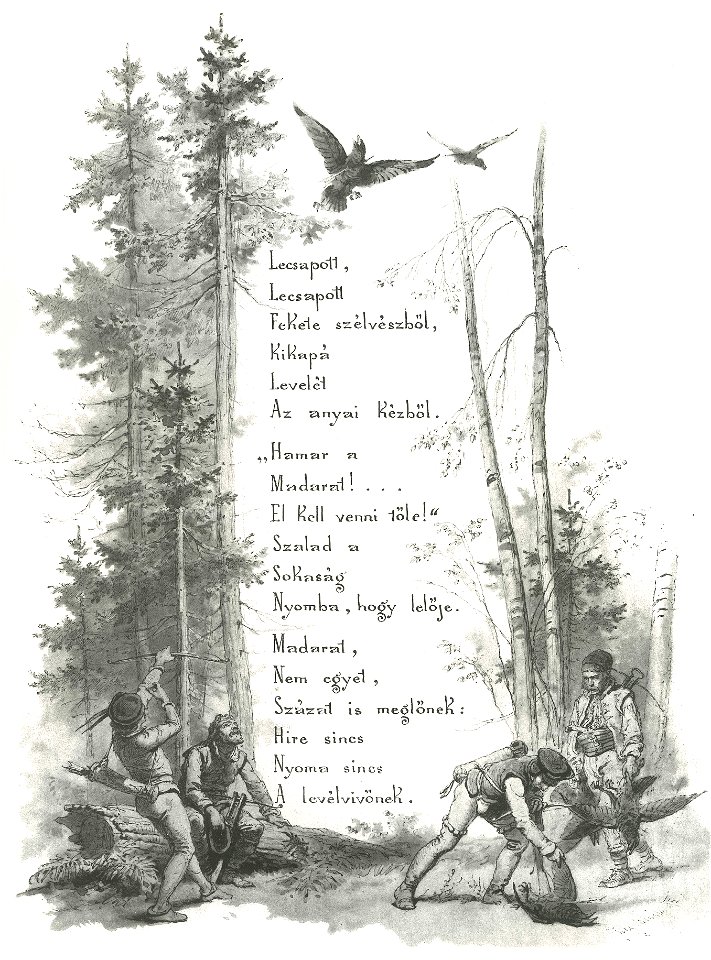 Lecsapott,
Lecsapott
Fekete szélvészből,
Kikapá
Levelét
Az anyai kézből.
„Hamar a
Madarat! . . .
El kell venni tőle!“
Szalad a
Sokaság
Nyomba, hogy lelője.
Madarat,
Nem egyet,
Százat is meglőnek:
Hire sincs
Nyoma sincs
A levélvivőnek.